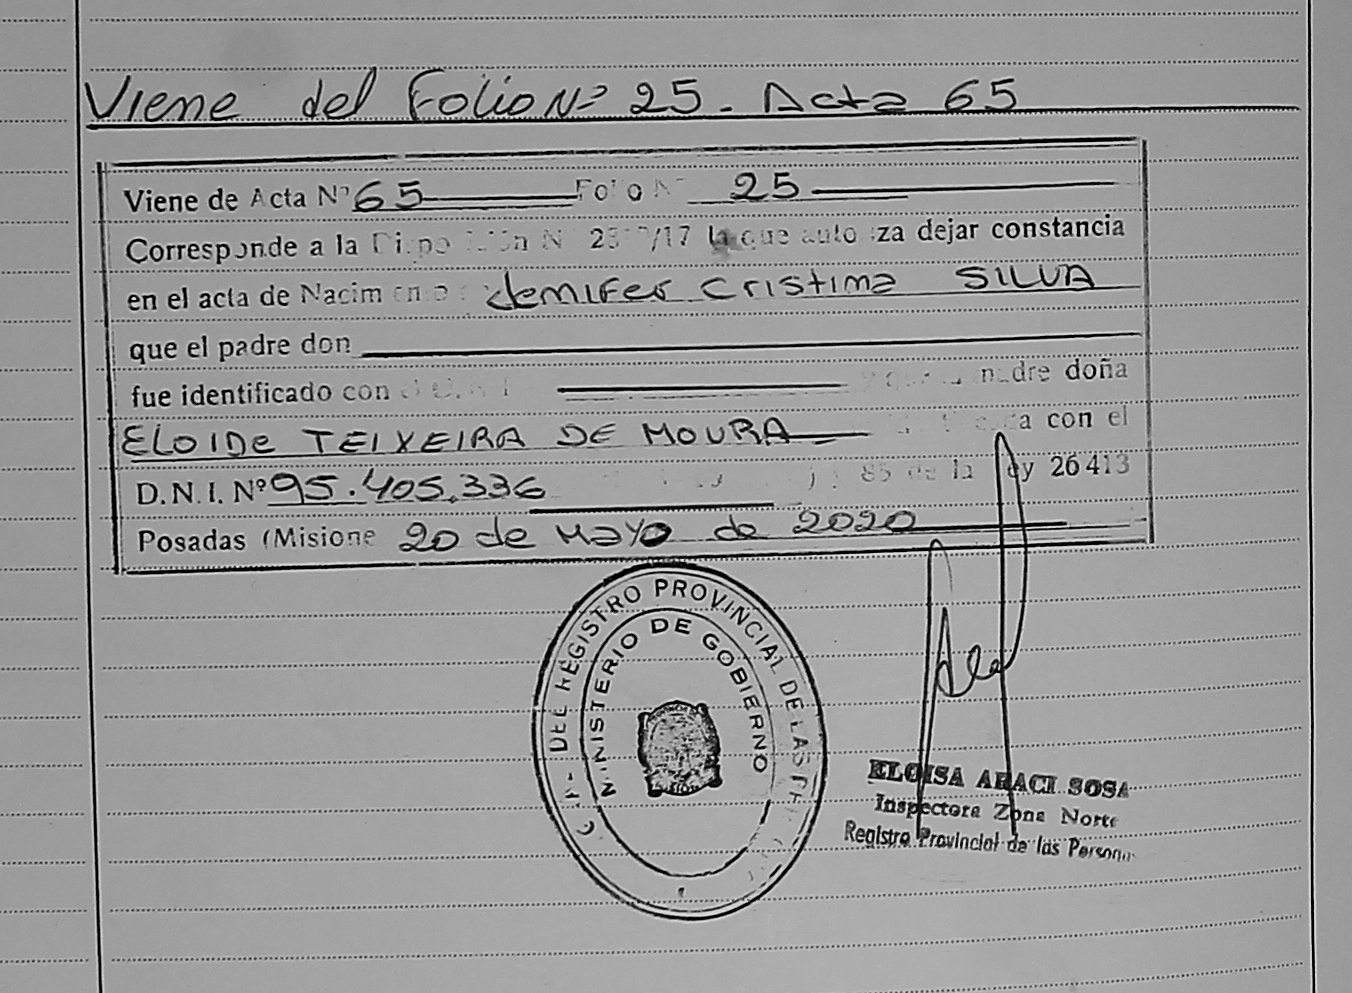 Viene del Folio Nº 25 - Acta 65
Viene de Acta Nº 65 Folio N 25
Corresponde a la /17 la que autoriza dejar constancia
en el acta de Nacimiento Jenifer Cristina SILVA
que el padre don
fue identificado con madre doña
ELOIDE TEIXEIRA DE MOURA con el
D.N.I. Nº 95.405.336 85 de la Ley 26413
Posadas (Misione 20 de Mayo de 2020
DEL REGISTRO PROVINCIAL DE LAS
MINISTERIO DE GOBIERNO
ELOISA ARACI SOSA
Inspectora Zona Norte
Registro Provincial de las Personas